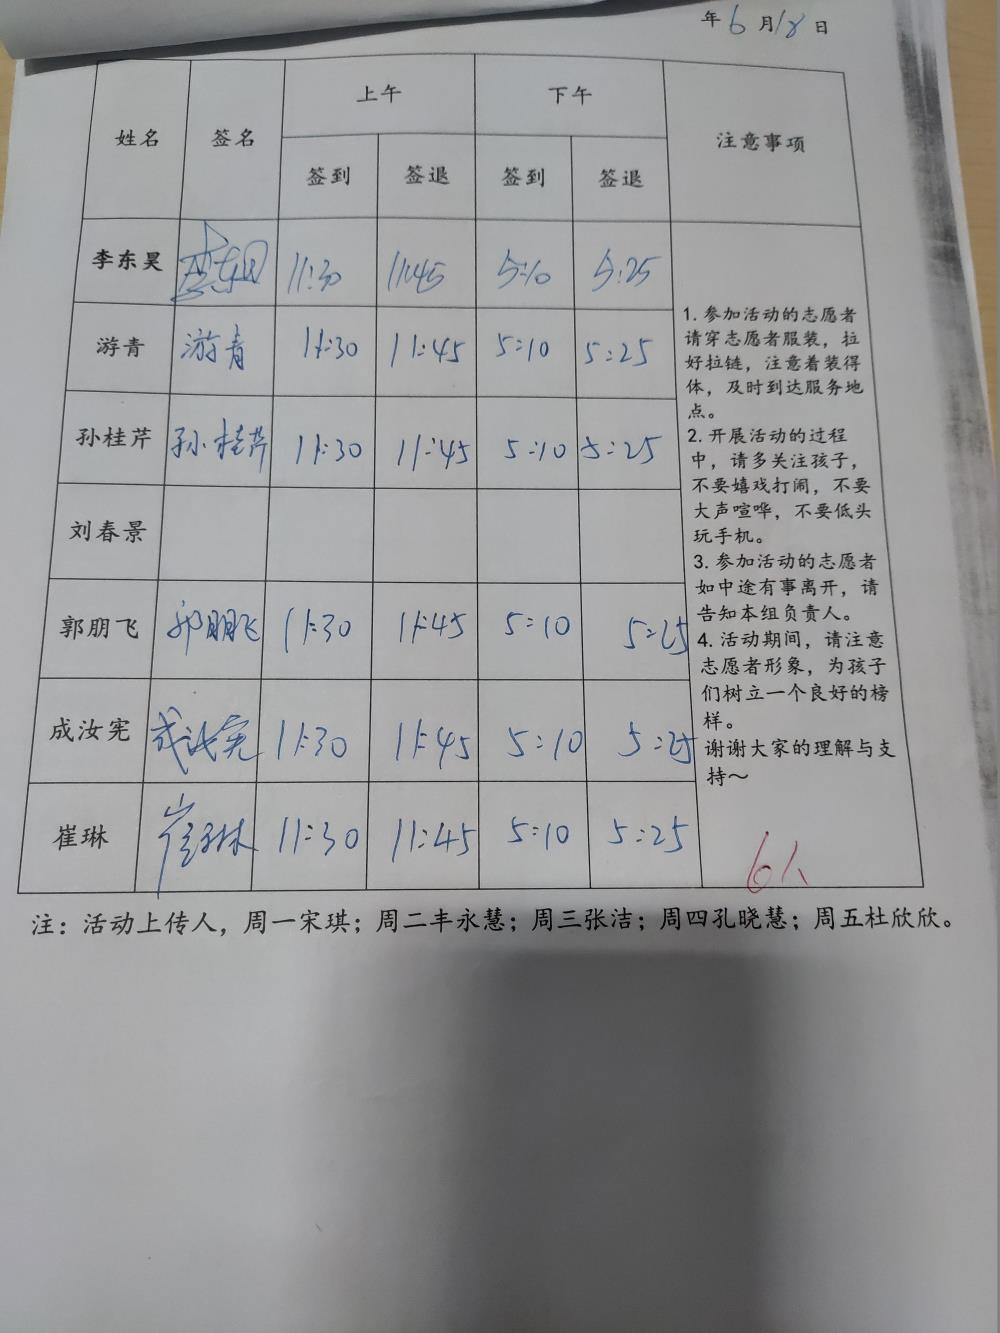 年6月18日
姓名 签名 上午 下午 注意事项
签到 签退 签到 签退
李东昊 李东昊 11:30 11:45 5:10 5:25
游青 游青 11:30 11:45 5:10 5:25
孙桂芹 孙桂芹 11:30 11:45 5:10 5:25
刘春景
郭朋飞 郭朋飞 11:30 11:45 5:10 5:25
成汝宪 成汝宪 11:30 11:45 5:10 5:25
崔琳 崔琳 11:30 11:45 5:10 5:25
1. 参加活动的志愿者
请穿志愿者服装，拉
好拉链，注意着装得
体，及时到达服务地
点。
2. 开展活动的过程
中，请多关注孩子，
不要嬉戏打闹，不要
大声喧哗，不要低头
玩手机。
3. 参加活动的志愿者
如中途有事离开，请
告知本组负责人。
4. 活动期间，请注意
志愿者形象，为孩子
们树立一个良好的榜
样。
谢谢大家的理解与支
持～
6人
注：活动上传人，周一宋琪；周二丰永慧；周三张洁；周四孔晓慧；周五杜欣欣。